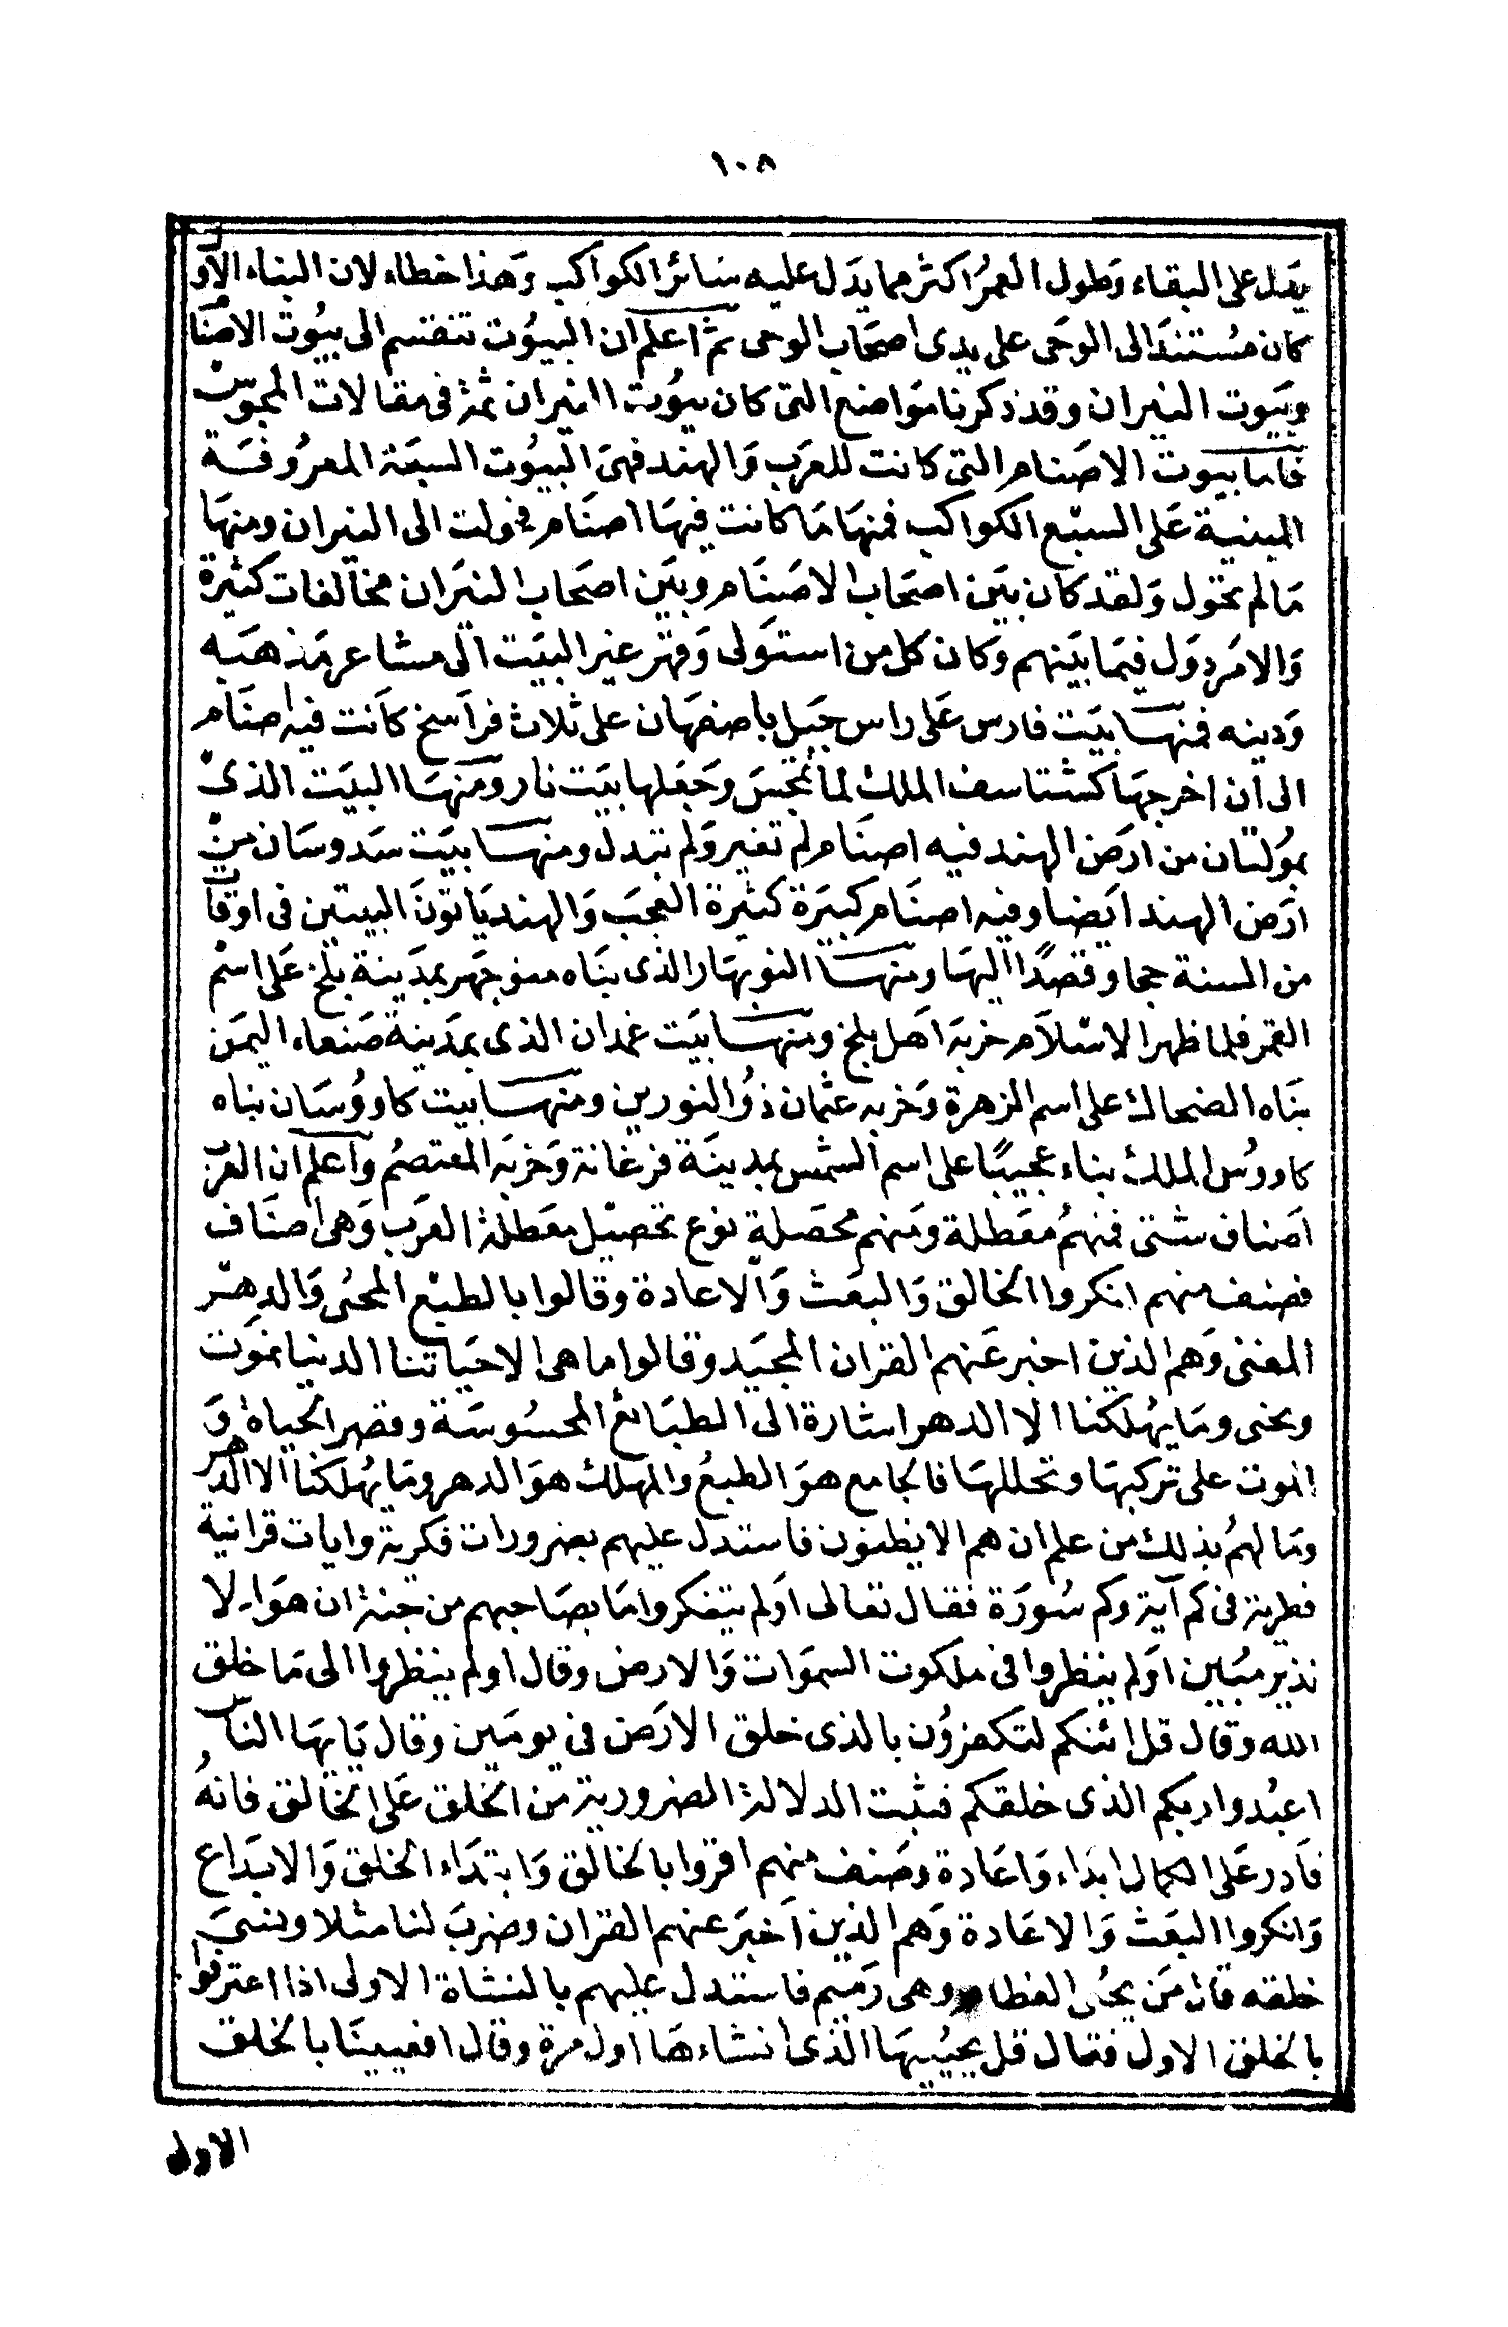 ١٠٨
يدل على البقاء وطول العمر اكثر مما يدل عليه سائر الكواكب وهذا خطاء لان البناء الاول
كان مستندا الى الوحى على يدى اصحاب الوحى ثم اعلم ان البيوت تنقسم الى بيوت الاصنام
وبيوت النيران وقد ذكرنا مواضع التى كان بيوت النيران ثمة فى مقالات المجوس
فاما بيوت الاصنام التى كانت للعرب والهند فهى البيوت السبعة المعروفة
المبنية على السبع الكواكب فمنها ما كانت فيها اصنام فحولت الى النيران ومنها
ما لم تحول ولقد كان بين اصحاب الاصنام وبين اصحاب النيران مخالفات كثيرة
والامر دول فيما بينهم وكان كل من استولى وقهر غير البيت الى مشاعر مذهبه
ودينه فمنها بيت فارس على راس جبل باصفهان على ثلاث فراسخ كانت فيه اصنام
الى ان اخرجها كشتاسف الملك لما تمجس وجعلها بيت نار ومنها البيت الذى
بمولتان من ارض الهند فيه اصنام لم تغير ولم تبدل ومنها بيت سدوسان من
ارض الهند ايضا وفيه اصنام كبيرة كثيرة العجب والهند ياتون البيتين فى اوقات
من السنة حجا وقصدا اليها ومنها النوبهار الذى بناه منوجهر بمدينة بلخ على اسم
القمر فلما ظهر الاسلام خربه اهل بلخ ومنها بيت غمدان الذى بمدينة صنعاء اليمن
بناه الضحاك على اسم الزهرة وخربه عثمان ذو النورين ومنها بيت كاووسان بناه
كاووس الملك بناء عجيبا على اسم الشمس بمدينة فرغانة وخربه المعتصم واعلم ان العرب
اصناف شتى فمنهم معطلة ومنهم محصلة نوع تحصيل معطلة العرب وهى اصناف
فصنف منهم انكروا الخالق والبعث والاعادة وقالوا بالطبع المحيى والدهر
المفنى وهم الذين اخبر عنهم القران المجيد وقالوا ما هى الا حياتنا الدنيا نموت
ونحيى وما يهلكنا الا الدهر اشارة الى الطبائع المحسوسة وقصر الحياة و
الموت على تركبها وتحللها فالجامع هو الطبع والمهلك هو الدهر وما يهلكنا الا الدهر
وما لهم بذلك من علم ان هم الا يظنون فاستدل عليهم بضرورات فكرية وايات قرانية
فطرية فى كم آية وكم سورة فقال تعالى اولم يتفكروا ما بصاحبهم من جنة ان هو الا
نذير مبين اولم ينظروا فى ملكوت السموات والارض وقال اولم ينظروا الى ما خلق
الله وقال قل ائنكم لتكفرون بالذى خلق الارض فى يومين وقال يايها الناس
اعبدوا ربكم الذى خلقكم فثبت الدلالة الضرورية من الخلق على الخالق فانه
قادر على الكمال ابداء واعادة وصنف منهم اقروا بالخالق وابتداء الخلق والابداع
وانكروا البعث والاعادة وهم الذين اخبر عنهم القران وضرب لنا مثلا ونسى
خلقه قال من يحى العظام وهى رميم فاستدل عليهم بالنشاة الاولى اذا اعترفوا
بالخلق الاول فقال قل يحييها الذى انشاءها اول مرة وقال افعيينا بالخلق
الاول